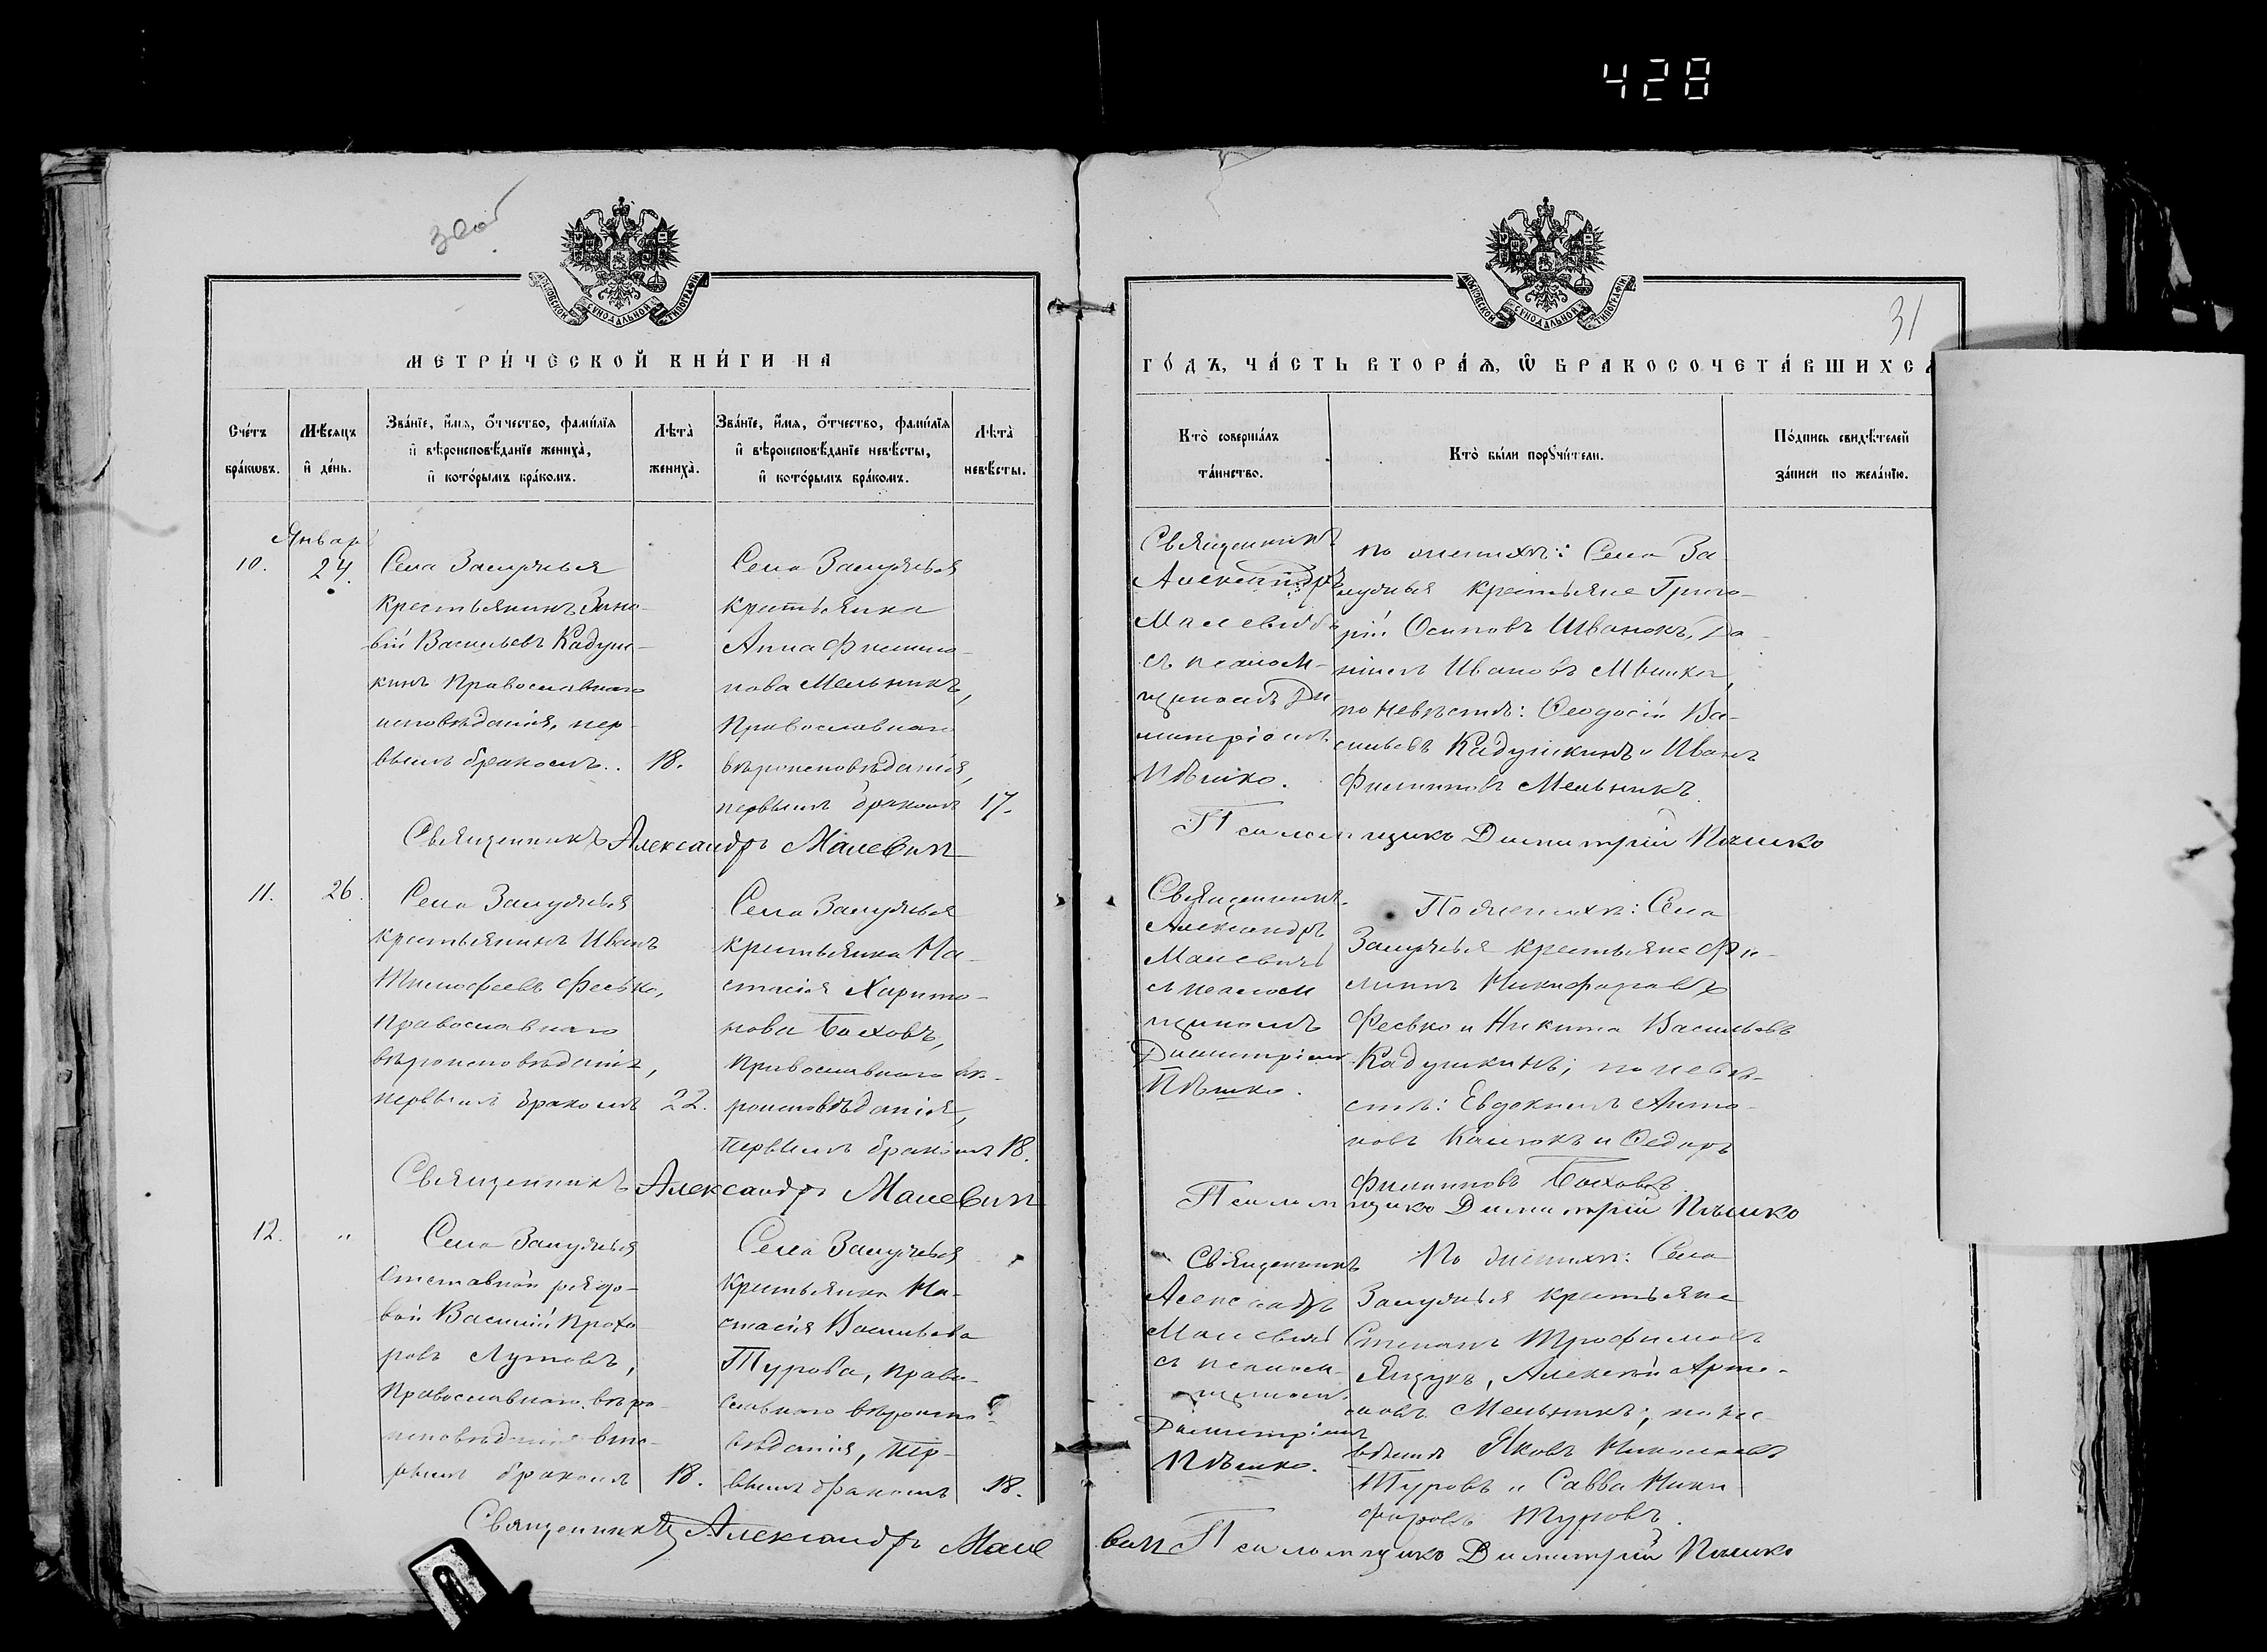 428
31
МОСКОВСКОЙ СѴНОДАЛЬНОЙ ТИПОГРАФІИ
МЕТРИ́ЧЕСКОЙ КНИ́ГИ НА
Сче́тъ бра́кѡвъ.
Мѣ́сяцъ и҆ де́нь.
Зва́нїе, и҆́мѧ, ѻ҆́тчество, фами́лїѧ
и҆ вѣроисповѣ́данїе жениха̀,
и҆ кото́рымъ бра́комъ.
Лѣ́та̀ жениха̀.
Зва́нїе, и҆́мѧ, ѻ҆́тчество, фами́лїѧ
и҆ вѣроисповѣ́данїе невѣ́сты,
и҆ кото́рымъ бра́комъ.
Лѣ́та̀ невѣ́сты.
МОСКОВСКОЙ СѴНОДАЛЬНОЙ ТИПОГРАФІИ
ГО́ДЪ, ЧА́СТЬ ВТОРА́Ѧ, Ѡ҆ БРАКОСОЧЕТА́ВШИХСѦ
Кто̀ соверша́лъ
та́инство.
Кто̀ бы́ли порꙋчи́тели.
По́дпись свидѣ́телей
за́писи по жела́нїю.
Январь
10.
24.
Села Залужья
крестьянинъ Зино-
вій Васильевъ Кадуш-
кинъ Православнаго
исповѣданія, пер-
вымъ бракомъ.
18.
Села Залужья
крестьянка
Анна Филипо-
нова Мельникъ,
Православнаго
вѣроисповѣданія,
первымъ бракомъ
17.
Священникъ
Александръ
Малевичъ
съ псалом-
щикомъ Ди-
митріемъ
Пѣшко.
по женихѣ: Села За-
лужья крестьяне Григо-
рій Осиповъ Иванюкъ,
Ивановъ
по невѣстѣ: Ѳеодосій Ва-
сильевъ Кадушкинъ и Иванъ
Филиповъ Мельникъ.
Священникъ Александръ Малевичъ
Псаломщикъ Димитрій Пѣшко
11.
26.
Села Залужья
крестьянинъ Иванъ
Тимофеевъ Фесько,
Православнаго
вѣроисповѣданія,
первымъ бракомъ
22.
Села Залужья
крестьянка На-
стасія Харито-
нова
Православнаго вѣ-
роисповѣданія,
первымъ бракомъ
18.
Священникъ
Александръ
Малевичъ
съ псалом
щикомъ
Димитріемъ
Пѣшко.
По женихѣ: Села
Залужья крестьяне Фи-
липпъ Никифоровъ
Фесько и Никита Васильевъ
Кадушкинъ; по невѣ-
стѣ: Евдокимъ Анто-
новъ и Ѳедоръ
Филиповъ
Священникъ Александръ Малевичъ
Псаломщикъ Димитрій Пѣшко
12.
"
Села Залужья
отставной рядо-
вой Василій Прохо-
ровъ Лутовъ,
Православнаго вѣро-
исповѣданія вто-
рымъ бракомъ
18.
Села Залужья
крестьянка На-
стасія Васильева
Турова, Право-
славнаго вѣроиспо-
вѣданія, пер-
вымъ бракомъ
18.
Священникъ
Александръ
Малевичъ
съ псалом-
щикомъ
Димитріемъ
Пѣшко.
По женихѣ: Села
Залужья крестьяне
Степанъ Трофимовъ
Ящукъ, Алексѣй Арте-
мовъ Мельникъ; по не-
вѣстѣ Яковъ Николаевъ
Туровъ и Савва Ники
форовъ Туровъ.
Священникъ Александръ Малевичъ
Псаломщикъ Димитрій Пѣшко